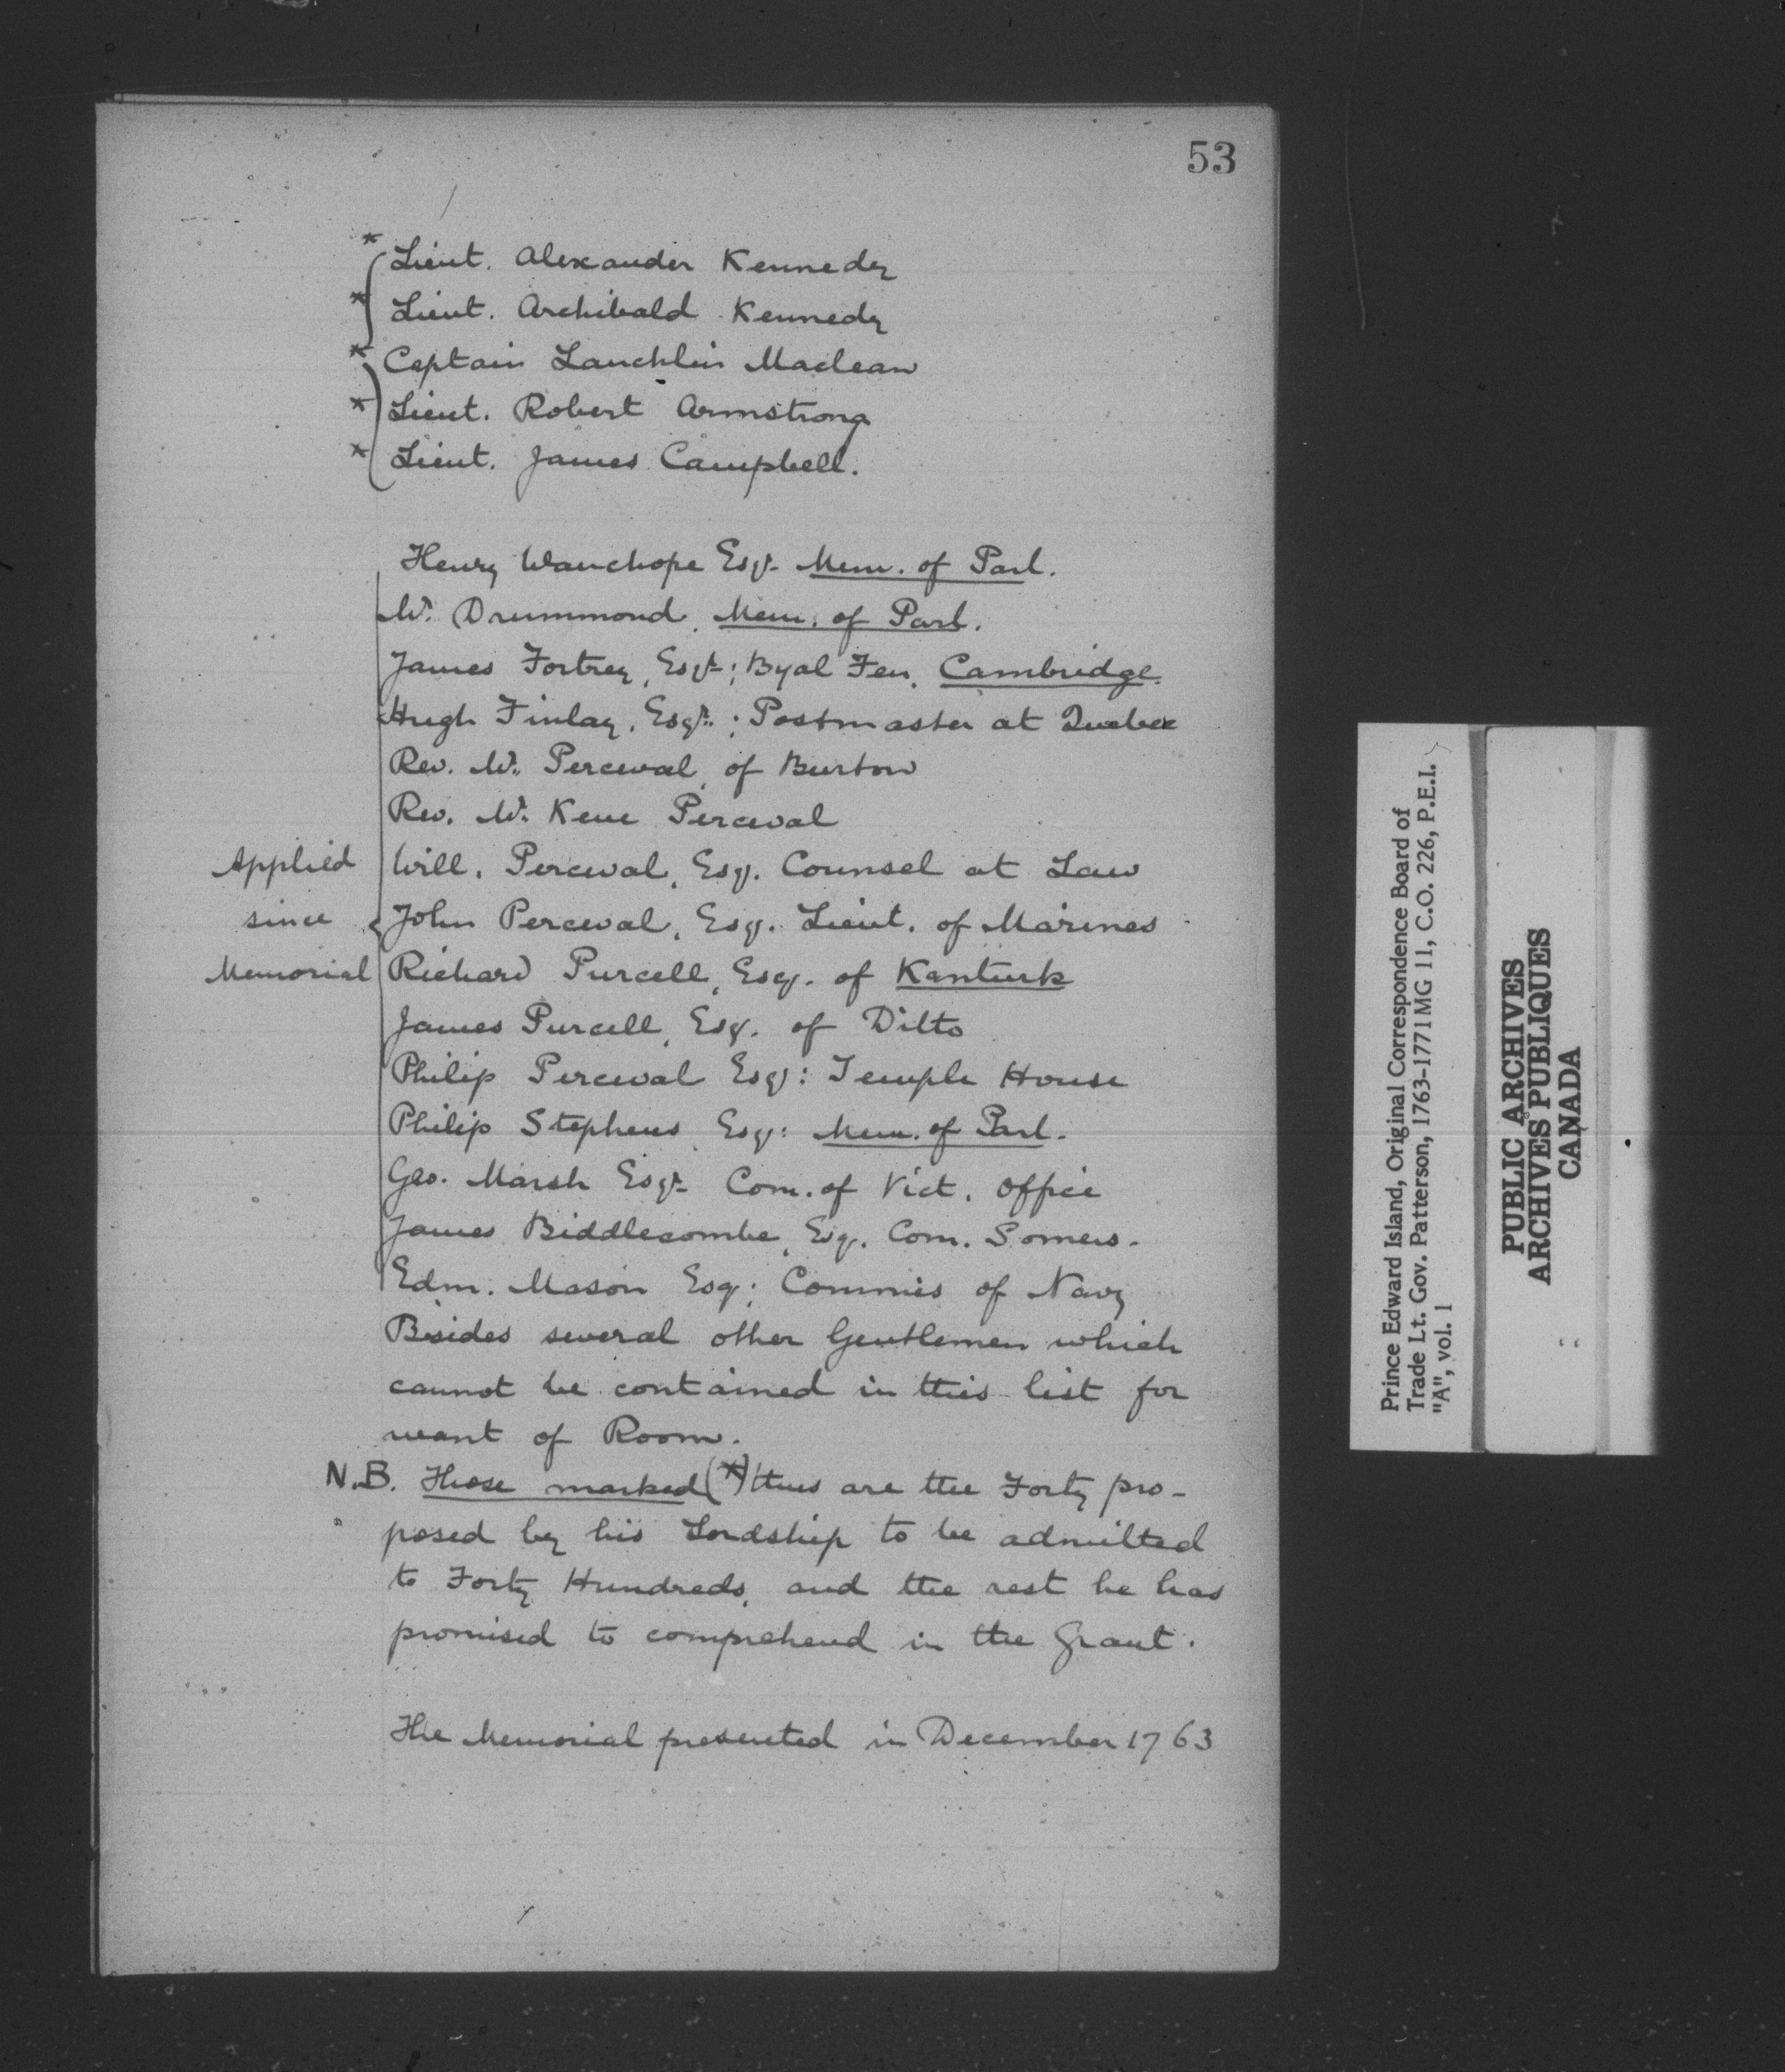 53
* Lieut. Alexander Kennedy
* Lieut. Archibald Kennedy
* Captain Lauchlin Maclean
* Lieut. Robert Armstrong
* Lieut. James Campbell.
Henry Wauchope Esqr. Mem. of Parl.
Mr. Drummond, Mem. of Parl.
James Fortrey, Esqr.; Byal Fen, Cambridge.
Hugh Finlay, Esqr.; Postmaster at Quebec
Rev. Mr. Perceval, of Burton
Rev. Mr. Kene Perceval
Applied Will. Perceval, Esq. Counsel at Law
since John Perceval, Esq. Lieut. of Marines
Memorial Richard Purcell, Esq. of Kanturk
James Purcell, Esq. of Ditto
Philip Perceval Esq: Temple House
Philip Stephens Esq: Mem. of Parl.
Geo. Marsh Esqr. Com. of Vict. Office
James Biddlecombe, Esq. Com. Somers.
Edm. Mason Esq: Commis of Navy
Besides several other Gentlemen which
cannot be contained in this list for
want of Room.
N.B. Those marked (*) thus are the Forty pro-
posed by his Lordship to be admitted
to Forty Hundreds, and the rest he has
promised to comprehend in the Grant.
The Memorial presented in December 1763
Prince Edward Island, Original Correspondence Board of
Trade Lt. Gov. Patterson, 1763-1771 MG 11, C.O. 226, P.E.I.
"A", vol. 1
PUBLIC ARCHIVES
ARCHIVES PUBLIQUES
CANADA